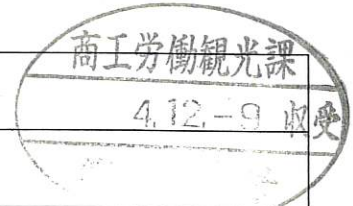 商工労働観光課
4.12.-9 収受